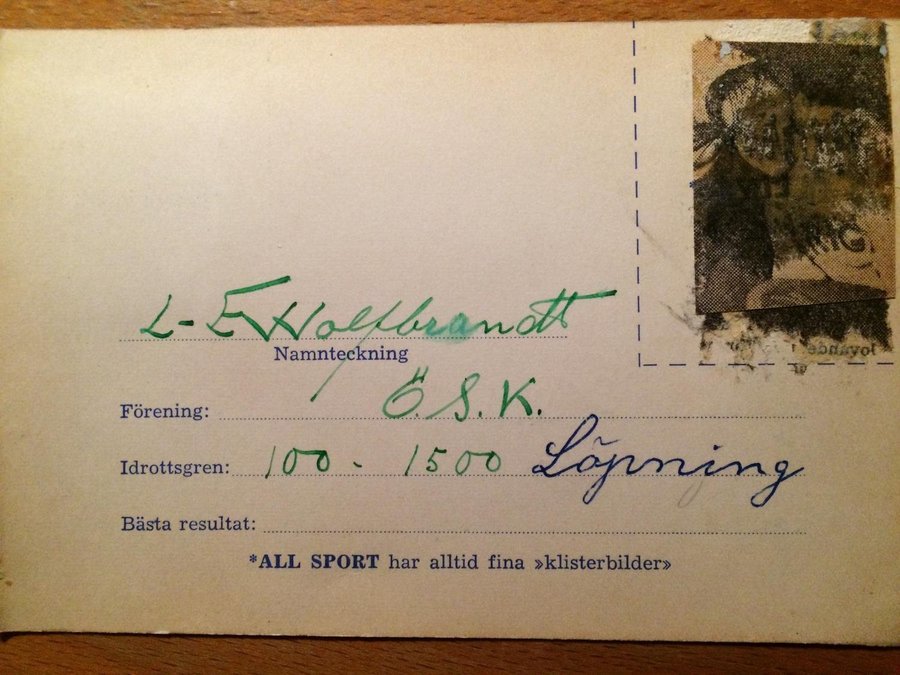 L-E Wolfbrandt
Namnteckning
Förening: Ö.S.K.
Idrottsgren: 100 - 1500 Löpning
Bästa resultat:
*ALL SPORT har alltid fina »klisterbilder»